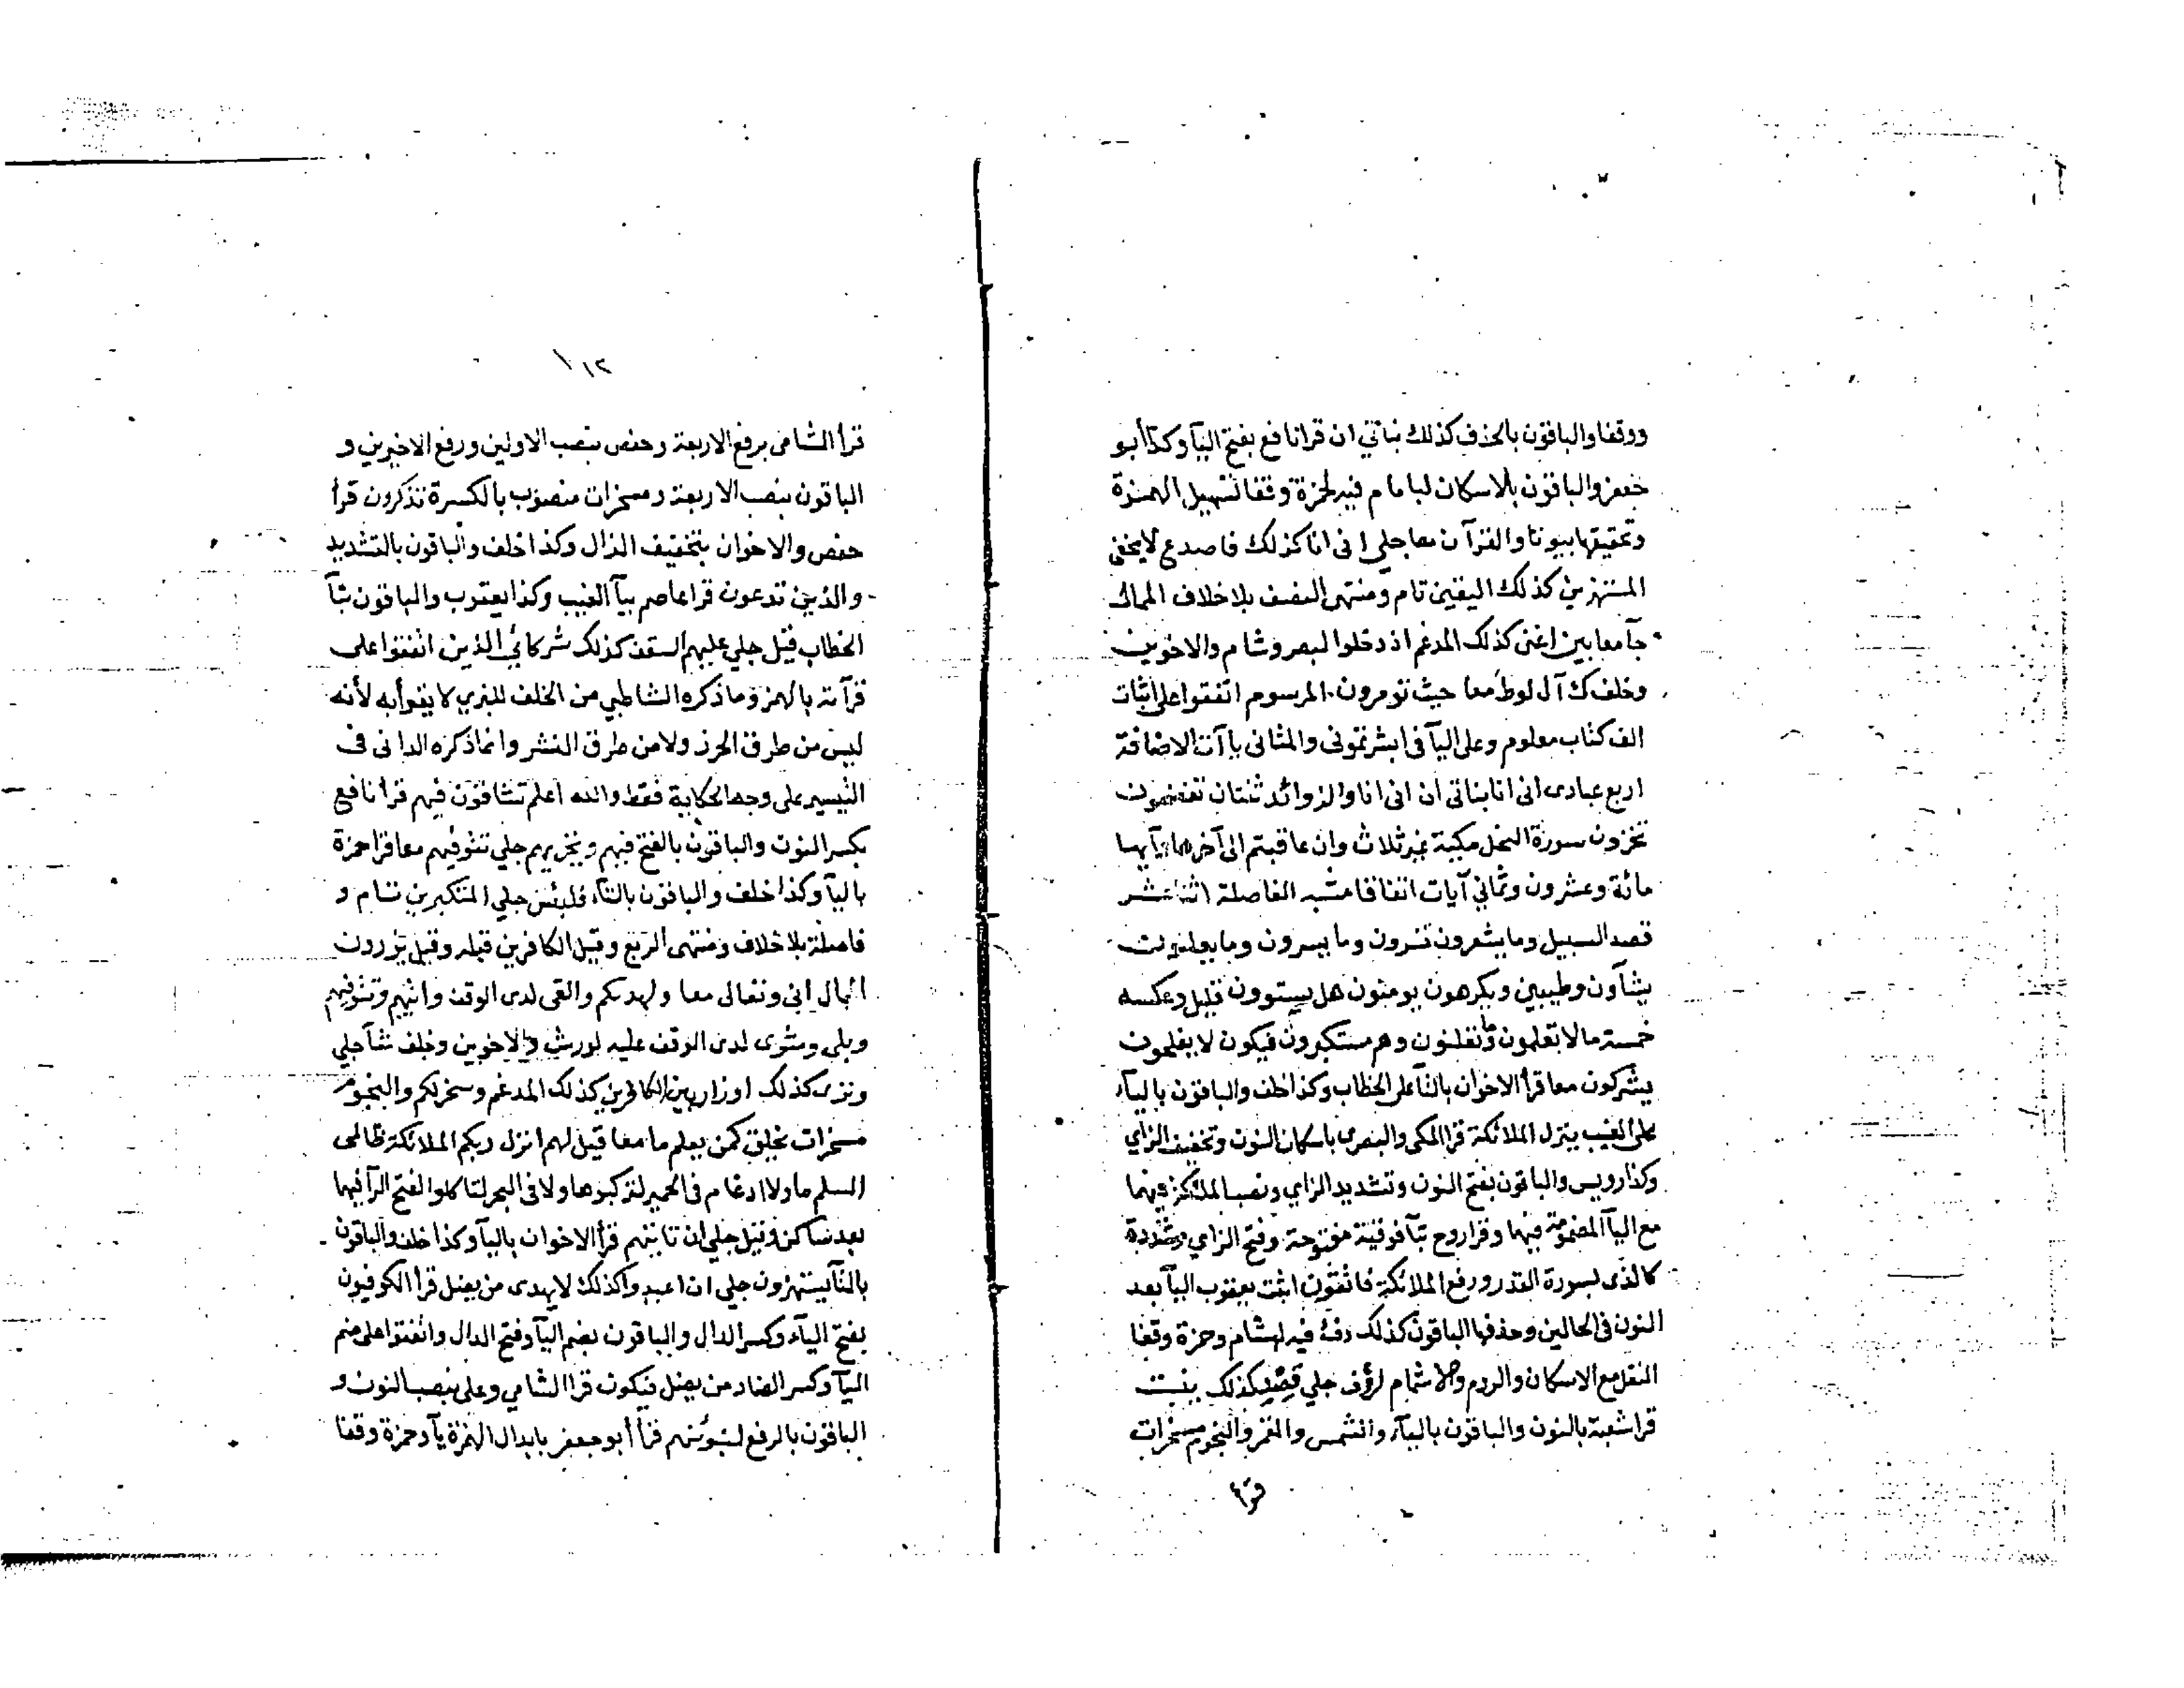 ووقفا والباقون بالحذف كذلك بناتي ان قرا نافع بفتح اليآ وكذا أبو
جعفر والباقون بالاسكان لبامام فيه لحمزة وقفا تسهيل الهمزة
وتحقيقها بيوتا والقرآن معا جلي اني انا كذلك فاصدع لا يخفى
المستهزئين كذلك اليقين تام ومنتهى النصف بلا خلاف الممال
جآ معا بين اغنى كذلك المدغم اذ دخلوا لبصر وشام والاخوين
وخلف ك آل لوط معا حيث تؤمرون المرسوم اتفقوا على اثبات
الف كتاب معلوم وعلى اليآ في ابشرتموني والمثاني ياآت الاضافة
اربع عبادي اني انا بناتي ان اني انا والزوائد ثنتان تفضحون
تخزون سورة النحل مكية غير ثلاث وان عاقبتم الى آخرها وآيها
مائة وعشرون وثماني آيات اتفاقا مشبه الفاصلة اثنا عشر
قصد السبيل وما يشعرون تسرون وما يسرون وما يعلنون
يشآون وطيبين ويكرهون يومنون هل يستوون قليل وعكسه
خمسة ما لا تعلمون وما تعلنون وهم مستكبرون فيكون لا يفلحون
يشركون معا قرأ الاخوان بالتآ على الخطاب وكذا خلف والباقون باليآء
على الغيب ينزل الملائكة قرا المكي والبصري باسكان النون وتخفيف الزاي
وكذا رويس والباقون بفتح النون وتشديد الزاي ونصب الملئكة فيهما
مع اليآ المضمومة فيهما وقرا روح بتآ فوقية مفتوحة وفتح الزاي مشددة
كالذي بسورة القدر ورفع الملائكة فاتقون اثبت يعقوب اليآ بعد
النون في الحالين وحذفها الباقون كذلك دفء فيه لهشام وحمزة وقفا
النقل مع الاسكان والروم والاشمام لرؤف جلي قصد كذلك ينبت
قرا شعبة بالنون والباقون باليآء والشمس والقمر والنجوم مسخرات
قرأ
١١٢
قرأ الشامي برفع الاربعة وحفص بنصب الاولين ورفع الاخيرين و
الباقون بنصب الاربعة ومسخرات منصوب بالكسرة تذكرون قرأ
حفص والاخوان بتخفيف الذال وكذا خلف والباقون بالتشديد
والذين تدعون قرا عاصم بيآ الغيب وكذا يعقوب والباقون بتآ
الخطاب قيل جلي عليهم السقف كذلك شركائي الذين اتفقوا على
قرآته بالهمز وما ذكره الشاطبي من الخلف للبزي لا يقرأ به لأنه
ليس من طرق الحرز ولا من طرق النشر وانما ذكره الداني في
التيسير على وجه الحكاية فقط والله اعلم تشاقون فيهم قرا نافع
بكسر النون والباقون بالفتح فيهم ويخزيهم جلي تتوفيهم معا قرا حمزة
باليآ وكذا خلف والباقون بالتآء فلبئس جلي المتكبرين تام و
فاصلة بلا خلاف ومنتهى الربع وقيل الكافرين قبله وقيل يزرون
الممال اتى وتعالى معا ولهديكم والقى لدى الوقف واتيهم وتتوفيهم
وبلى ومثوى لدى الوقف عليه لورش والاخوين وخلف شآ جلي
وترى كذلك اوزار بين الكافرين كذلك المدغم وسخر لكم والنجوم
مسخرات يخلق كمن يعلم ما معا قيل لهم انزل ربكم الملائكة ظالمي
السلم ما ولا ادغام في الحمير لتركبوها ولا في البحر لتاكلوا لفتح الرآ فيهما
بعد ساكن وقيل جلي ان تاتيهم قرأ الاخوان باليآ وكذا خلف والباقون
بالتآ يستهزون جلي ان اعبدوا كذلك لا يهدي من يضل قرأ الكوفيون
بفتح اليآء وكسر الدال والباقون بضم اليآ وفتح الدال واتفقوا على ضم
اليآ وكسر الضاد من يضل فيكون قرا الشامي وعلي بنصب النون و
الباقون بالرفع لنبوئنهم قرأ أبو جعفر بابدال الهمزة يآ وحمزة وقفا